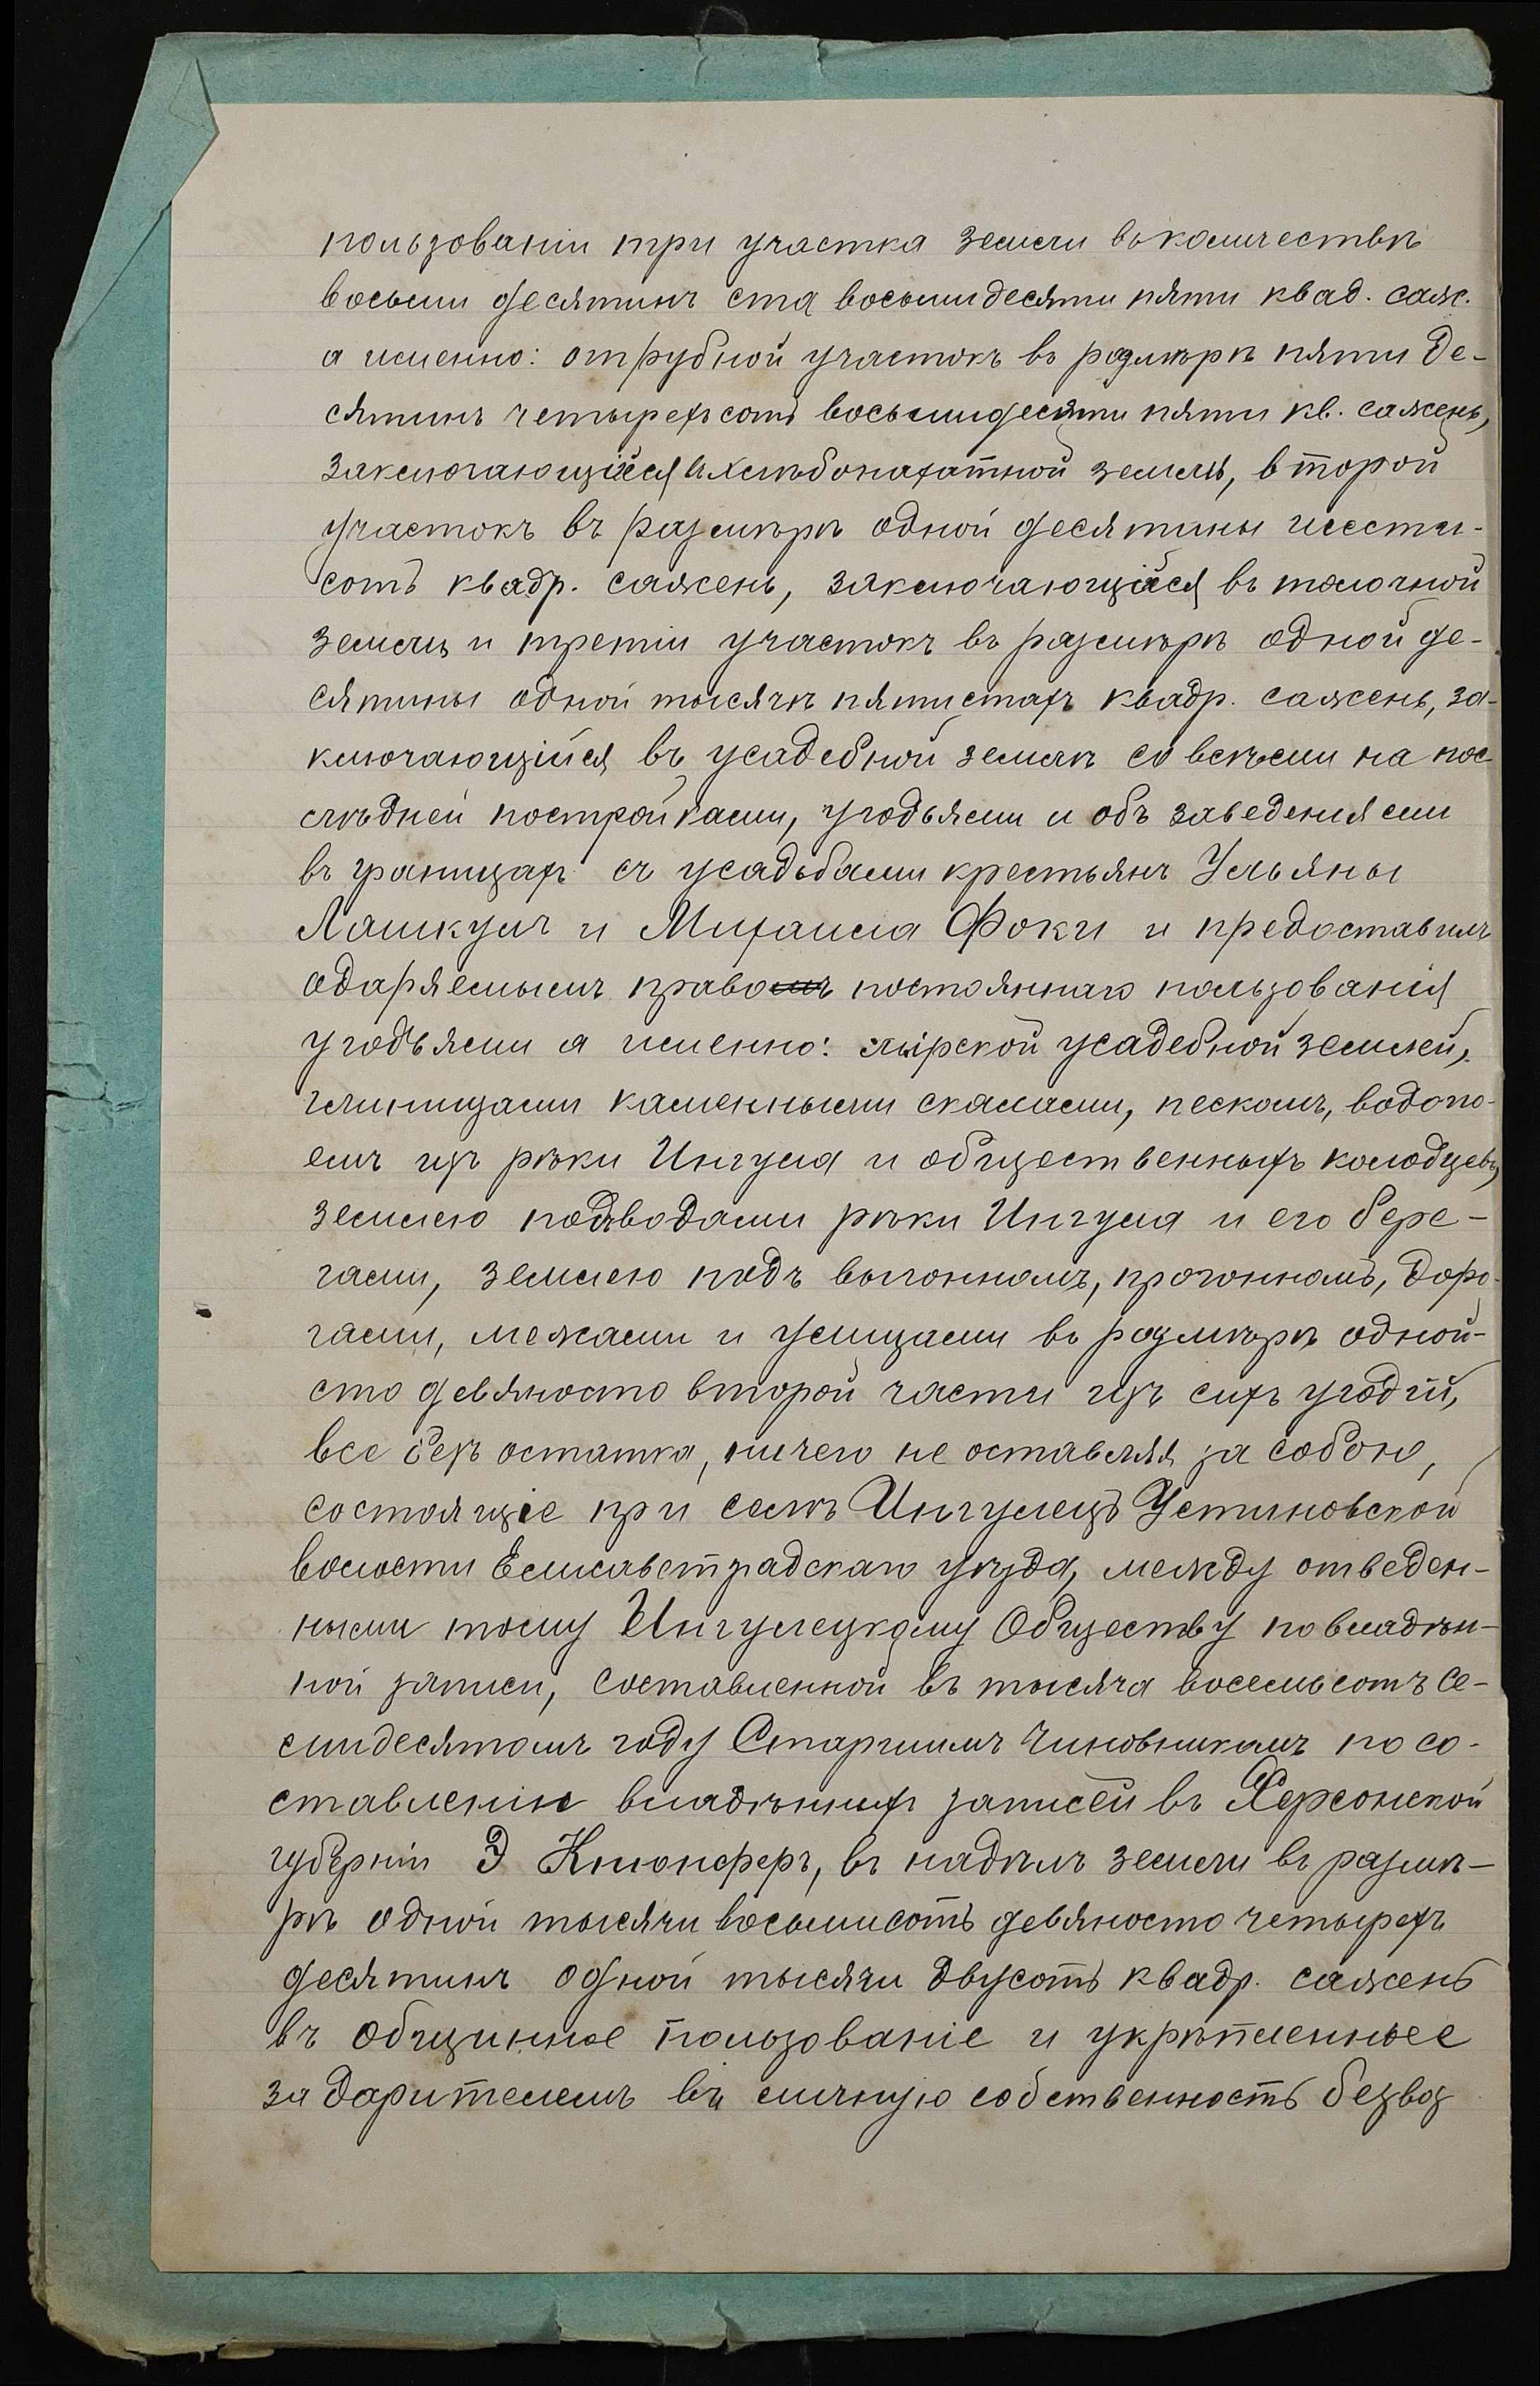 пользованіи три участка земли въ количествѣ
восьми десятинъ ста восьмидесяти пяти квад. саж.
а именно: отрубной участокъ въ размѣрѣ пяти де-
сятинъ четырехсотъ восьмидесяти пяти кв. сажень,
заключающійся въ хлѣбопахатной землѣ, второй
участокъ въ размѣрѣ одной десятины шести-
сотъ квадр. сажень, заключающійся въ толочной
землѣ и третій участокъ въ размѣрѣ одной де-
сятины одной тысячѣ пятистахъ квадр. сажень, за-
ключающійся въ усадебной землѣ со всѣми на пос
лѣдней постройками, угодьями и объ заведениями
въ границахъ съ усадьбами крестьянъ Ульяны
Лашкулъ и Михаила Фоки и предоставилъ
одаряемымъ право постояннаго пользованія
угодьями а именно: мірской усадебной землей,
глинищами каменными скалами, пескомъ, водопо-
емъ изъ рѣки Ингула и общественныхъ колодцевъ,
землею подъ водами рѣки Ингула и его бере-
гами, землею подъ выгонномъ, прогонномъ, доро-
гами, межами и улицами въ размѣрѣ одной-
сто девяносто второй части изъ сихъ угодій,
все безъ остатка, ничего не оставляя за собою,
состоящіе при селѣ Ингулецъ Устиновской
волости Елисаветградскаго уѣзда, между отведен-
ными тому Ингулецкому Обществу по владѣн-
ной записи, составленной въ тысяча восемьсотъ се-
мидесятомъ году Старшимъ Чиновникомъ по со-
ставленію владѣнныхъ записей въ Херсонской
губерніи Э Кнюпферъ, въ надѣлъ земли въ размѣ-
рѣ одной тысячи восьмисотъ девяносто четырехъ
десятинъ одной тысячи двусотъ квадр. сажень
въ общинное пользованіе и укрѣпленные
за дарителемъ въ личную собственность безвоз